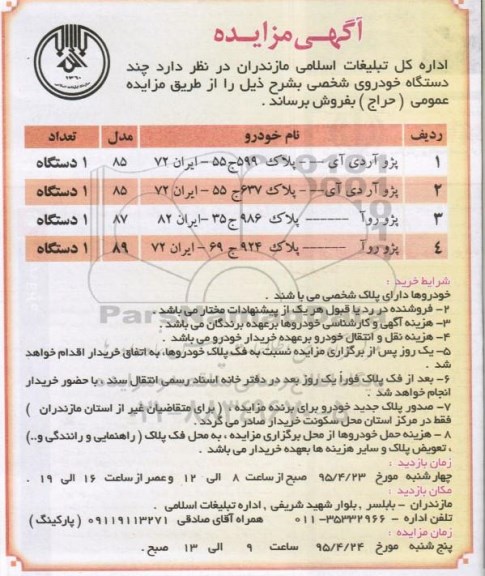 آگهی مزایده
اداره کل تبلیغات اسلامی مازندران در نظر دارد چند
دستگاه خودروی شخصی بشرح ذیل را از طریق مزایده
عمومی (حراج) بفروش برساند .
ردیف نام خودرو مدل تعداد
۱ پژو آردی آی --- - پلاک ۵۹۹ج۵۵ – ایران ۷۲ ۸۵ ۱ دستگاه
۲ پژو آر دی آی--- - پلاک ۶۳۷ج۵۵ – ایران ۷۲ ۸۵ ۱ دستگاه
۳ پژو روآ ------ پلاک ۹۸۶ ج۳۵ –ایران ۸۲ ۸۷ ۱ دستگاه
۴ پژو روآ ------ پلاک ۹۲۴ ج ۶۹ –ایران ۷۲ ۸۹ ۱ دستگاه
شرایط خرید :
خودروها دارای پلاک شخصی می با شند .
۲- فروشنده در رد یا قبول هر یک از پیشنهادات مختار می باشد .
۳- هزینه آگهی و کارشناسی خودروها برعهده برندگان می باشد .
۴- هزینه نقل و انتقال خودرو برعهده خریدار خودرو می باشد .
۵- یک روز پس از برگزاری مزایده نسبت به فک پلاک خودروها، به اتفاق خریدار اقدام خواهد
شد .
۶- بعد از فک پلاک فوراً یک روز بعد در دفتر خانه اسناد رسمی انتقال سند ، با حضور خریدار
انجام خواهد شد .
۷- صدور پلاک جدید خودرو برای برنده مزایده ، (برای متقاضیان غیر از استان مازندران )
فقط در مرکز استان محل سکونت خریدار صادر می گردد .
۸ - هزینه حمل خودروها از محل برگزاری مزایده ، به محل فک پلاک (راهنمایی و رانندگی و..)
، تعویض پلاک و سایر هزینه ها بعهده خریدار می باشد .
زمان بازدید :
چهار شنبه مورخ ۹۵/۴/۲۳ صبح از ساعت ۸ الی ۱۲ و عصر از ساعت ۱۶ الی ۱۹ .
مکان بازدید :
مازندران - بابلسر ,بلوار شهید شریفی , اداره تبلیغات اسلامی .
تلفن اداره - ۳۵۳۳۲۹۶۶-۰۱۱ همراه آقای صادقی ۰۹۱۱۹۱۱۳۲۷۱ (پارکینگ)
زمان مزایده :
پنج شنبه مورخ ۹۵/۴/۲۴ ساعت ۹ الی ۱۳ صبح.